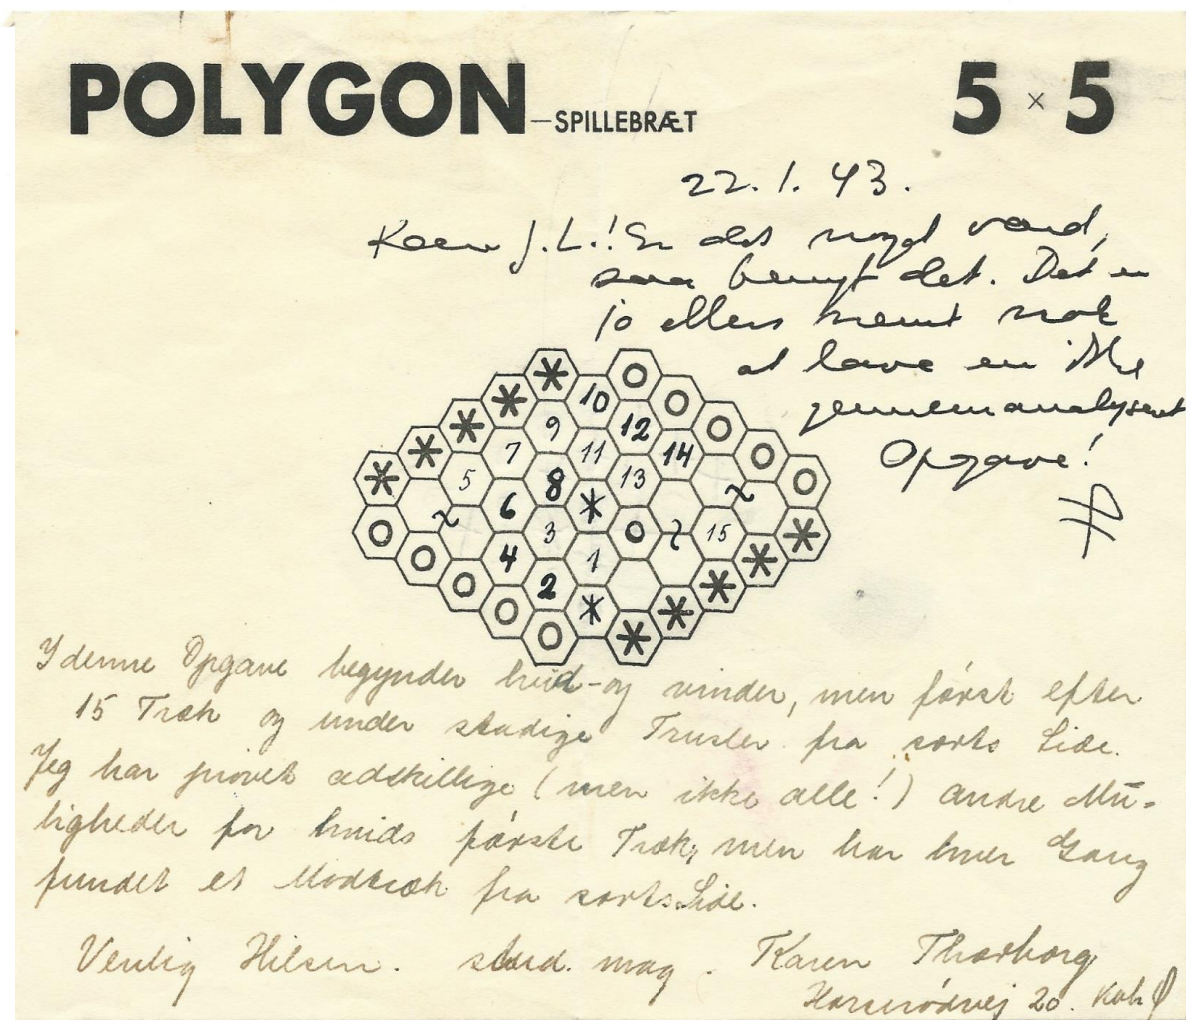 POLYGON-SPILLEBRÆT 5×5
22.1.43.
Kære J.L.! Er det noget værd,
saa benyt det. Det er
jo ellers nemt nok
at lave en ikke
gennemanalyseret
Opgave!
10
9 12
7 11 14
5 8 13
6
3 15
4 1
2
I denne Opgave begynder hvid - og vinder, men først efter
15 Træk og under stadige Trusler fra sorts Side.
Jeg har prøvet adskillige (men ikke alle!) andre Mu-
ligheder for hvids første Træk, men har hver Gang
fundet et Modtræk fra sorts Side.
Venlig Hilsen. stud. mag. Karen Thorborg
20. Kbh Ø